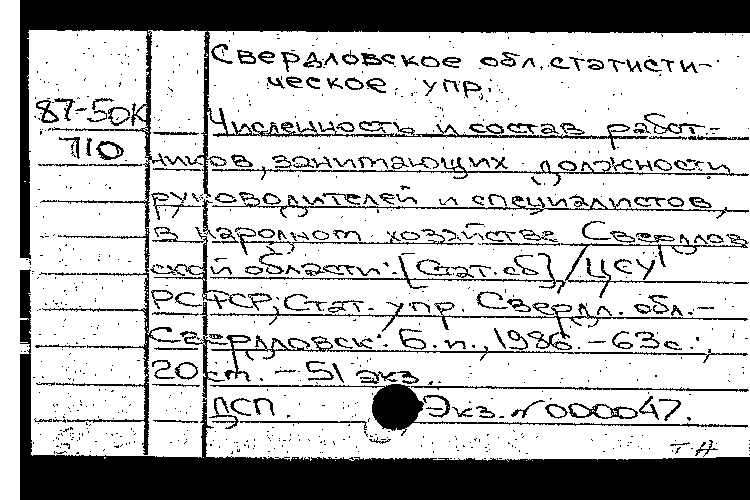 Свердловское обл. статисти-
ческое упр.
87-50К
710
Численность и состав работ-
ников, занимающих должности
руководителей и специалистов,
в народном хозяйстве Свердлов
ской области: [Стат. сб] / ЦСУ
РСФСР, Стат. упр. Свердл. обл.-
Свердловск: Б. и., 1986. - 63с.;
20 ст. - 51 экз.
ДСП. Экз. № 000047.
Т Н